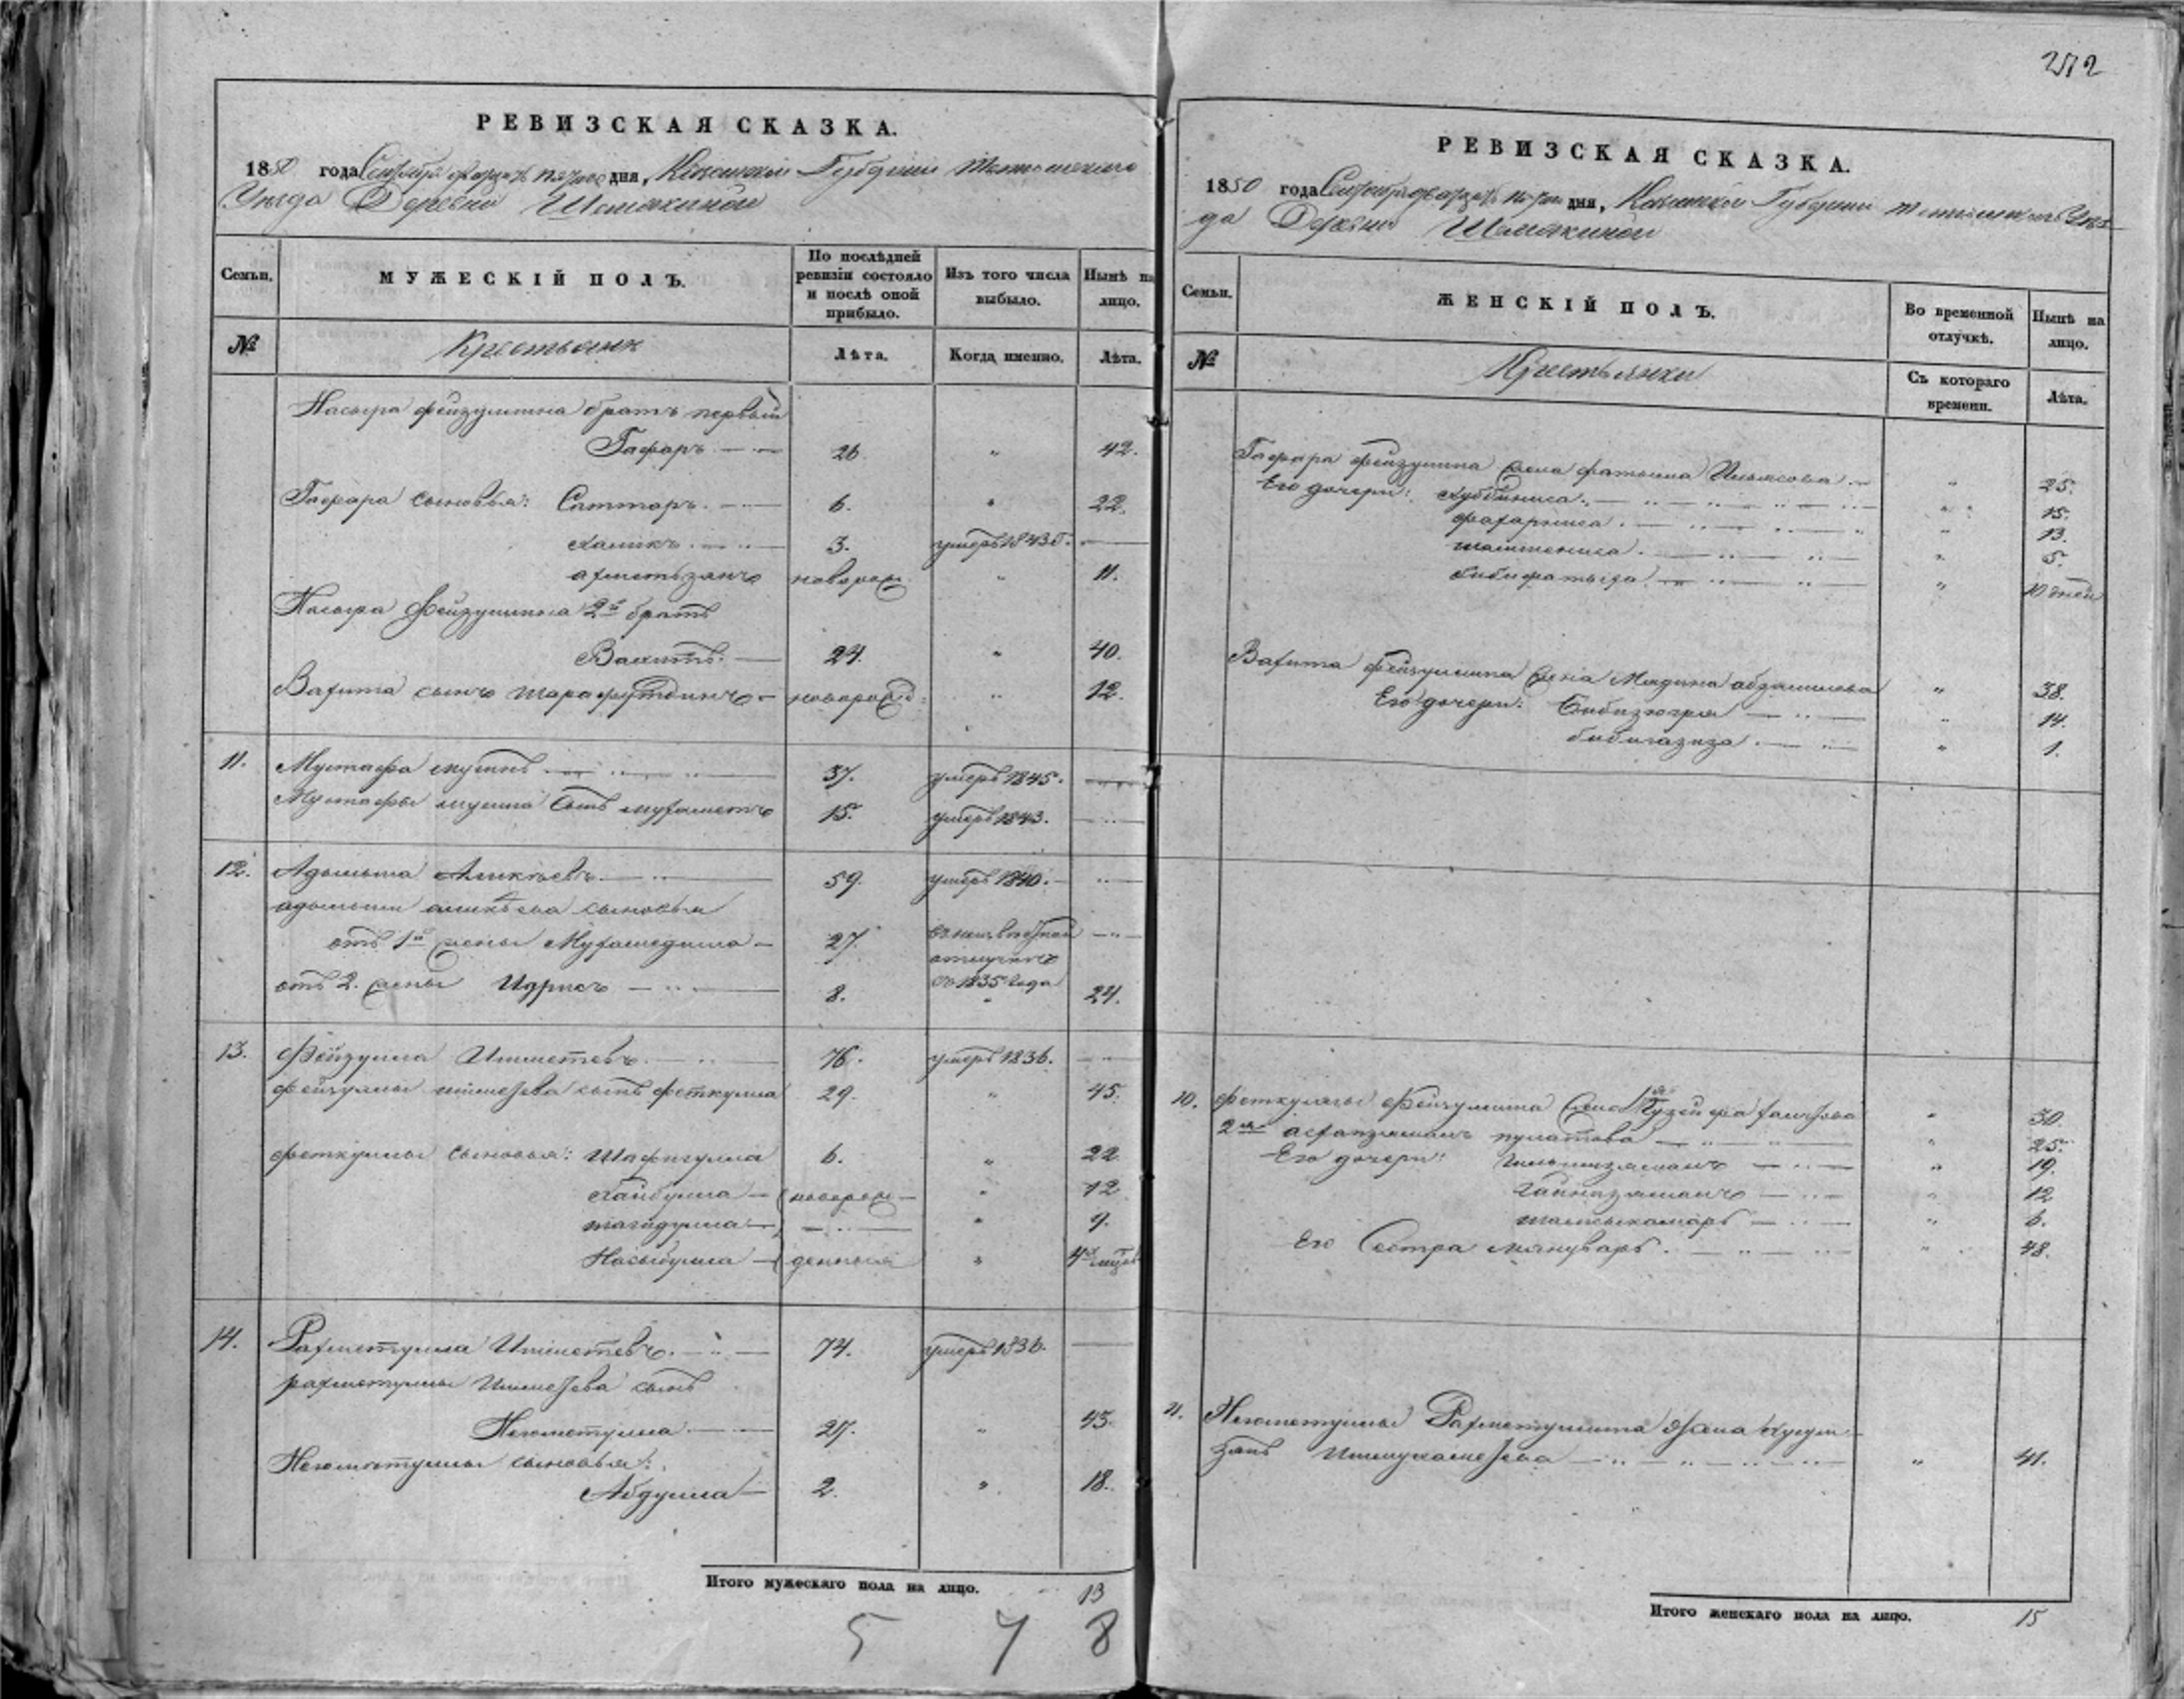 252
РЕВИЗСКАЯ СКАЗКА.
1850 года Сентября двадцать пятого дня, Казанской Губернии Тетюшского
Уезда Деревни Шамакиной
Семьи.
МУЖЕСКІЙ ПОЛЪ.
По послѣдней ревизіи состояло и послѣ оной прибыло.
Изъ того числа выбыло.
Нынѣ на лицо.
№
Крестьянъ
Лѣта.
Когда именно.
Лѣта.
Насыра фейзуллина братъ первый
Гафаръ 26 " 42.
Гафара сыновья: Саттаръ. 6. " 22.
Халикъ 3. умеръ 1843 г.
ахметьзянъ новорож " 11.
Насыра Фейзуллина 2й братъ
Вахитъ. 24. " 40.
Вахита сынъ шарафутдинъ новорожд. " 12.
11. Мустафа мусинъ 37. умеръ 1845.
Мустафы мусина сынъ мухаметъ 15. умеръ 1843.
12. Адыльша Аликѣевъ. 59. умеръ 1840.
адыльши аликѣева сыновья
отъ 1й жены 27. въ неизвѣстной
отлучкѣ
отъ 2. жены Идрисъ 8. съ 1835 года 24.
13. Фейзулла Ишметевъ. 76. умеръ 1836.
фейзуллы ишметева сынъ феткулла 29. " 45.
феткуллы сыновья: Шафигулла 6. " 22
Хайбулла новорож " 12
" 9.
Насыбулла денныя " 4х мѣсяц
14. Рахметулла Ишметевъ. 74. умеръ 1836.
рахметуллы Ишметева сынъ
Неюметулла 27. " 43.
Неюметуллы сыновья:
Абдулла 2. " 18.
Итого мужескаго пола на лицо. 13
5 7 8
РЕВИЗСКАЯ СКАЗКА.
1850 года Сентября двадцать пятого дня, Казанской Губернии Тетюшского Уез
да Деревни Шамакиной
Семьи.
ЖЕНСКІЙ ПОЛЪ.
Во временной отлучкѣ.
Нынѣ на лицо.
№
Крестьянки
Съ котораго времени.
Лѣта.
Гафара фейзуллина жена фатыма Ильясова " 25.
Его дочери: Хуббиниса. " 15.
фахарниса. " 13.
" 5.
бибифатыза " 10 дней
Вахита фейзуллина жена Мадина абдашева " 38.
Его дочери: Бибизюгря " 14.
бибигазиза. " 1.
10. феткуллы Фейзуллина жена 1я " 30.
2я " 25.
Его дочери: " 19.
Гайнизяманъ " 12
шамсыкамаръ " 6.
Его Сестра мянуваръ. " 48.
11. Неюметуллы Рахметуллина жена
зянъ Ишмухаметева " 41.
Итого женскаго пола на лицо. 15